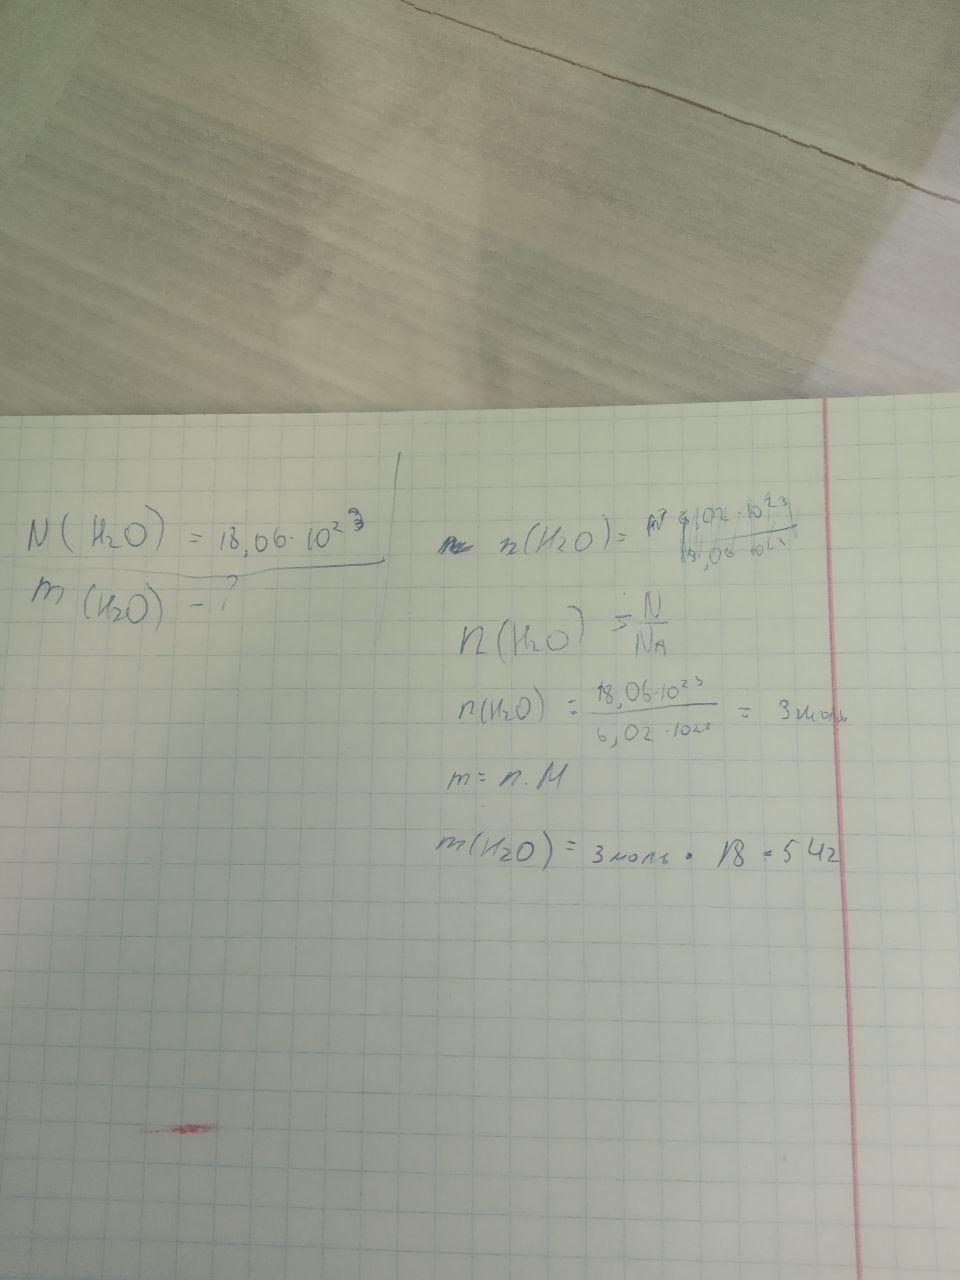 N(H₂O) = 18,06·10²³
m(H₂O) - ?
n(H₂O) =
n(H₂O) = N/Nᴀ
n(H₂O) = 18,06·10²³/6,02·10²³ = 3 моль
m = n·M
m(H₂O) = 3 моль · 18 = 54г